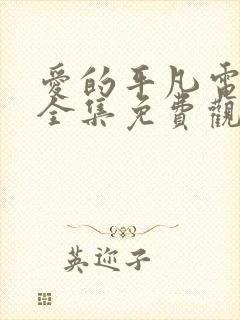 愛的平凡電
全集免費觀
英迩子